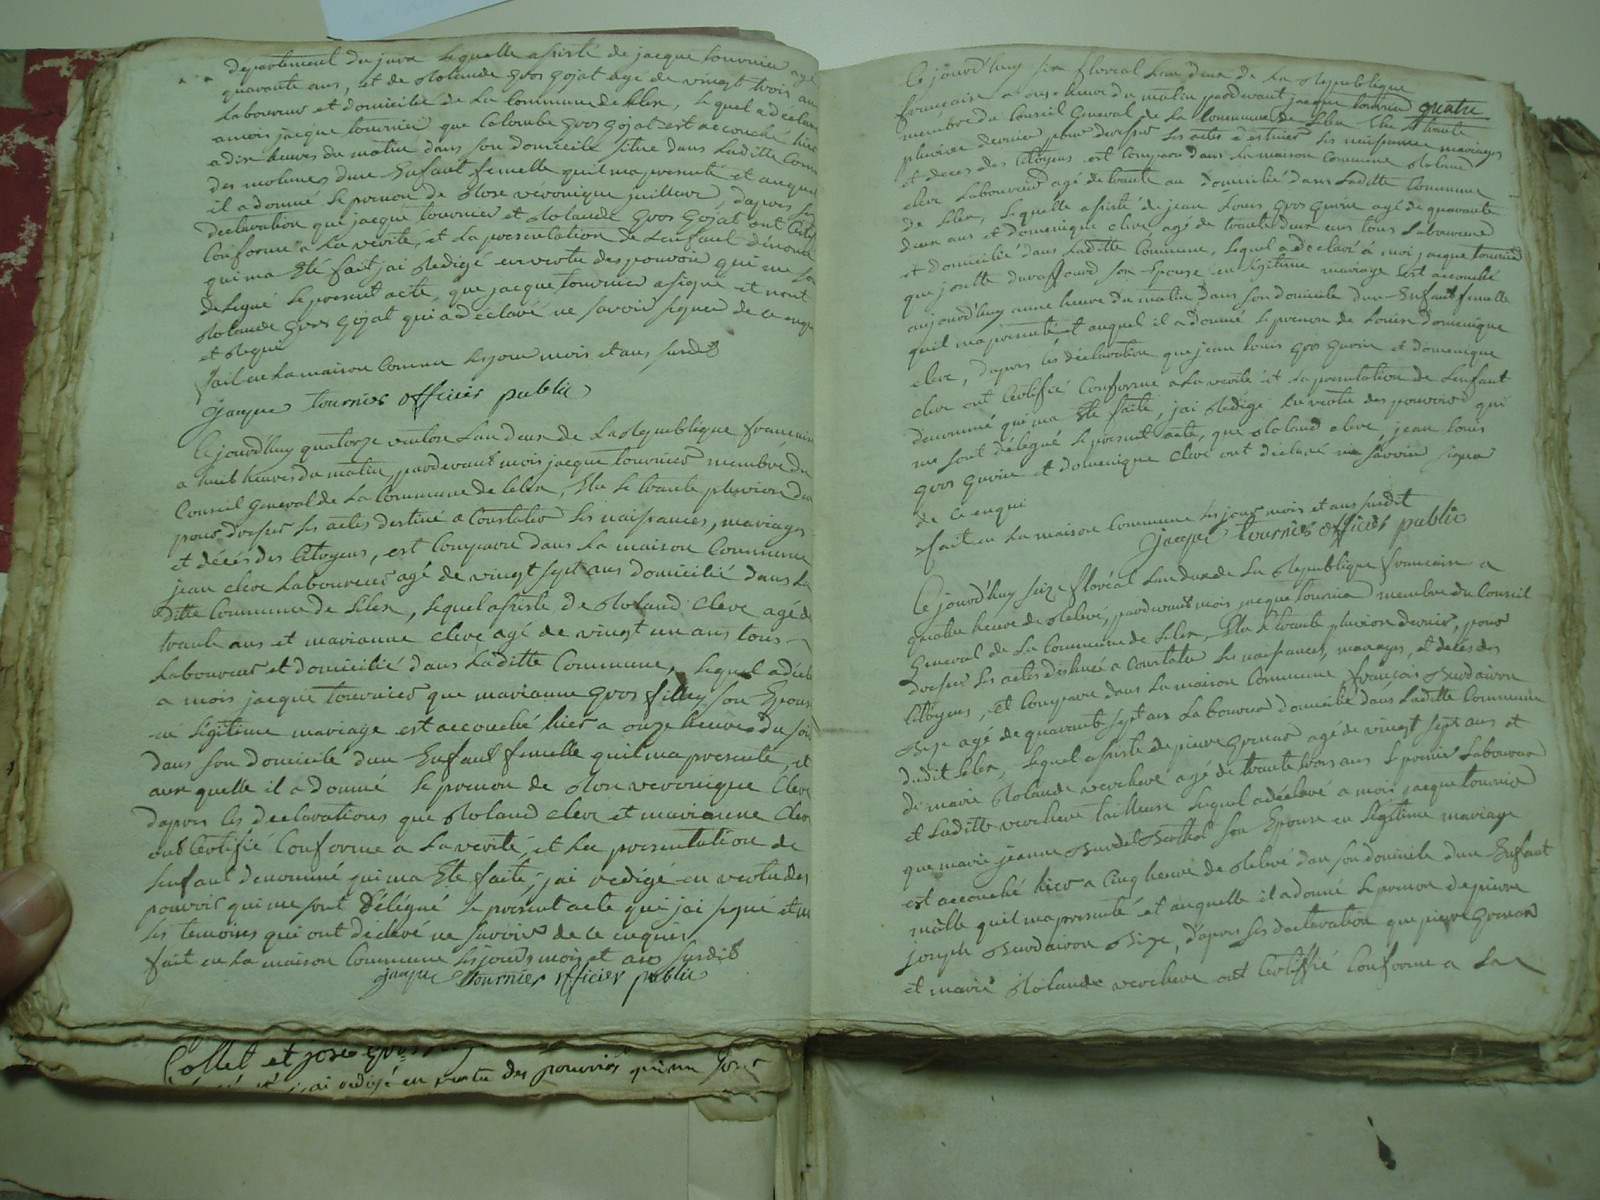 departement du jura lequelle assisté de jacque tournier agé
quarante ans, et de Rolande gros gojat agé de vingt trois ans
Laboureur et domicilié de La Commune de lelex, lequel a déclaré
a mois jacque tournier que Colombe gros gojat est accouché hier
a dix heures du matin dans son domicile situé dans Laditte Comm
des molunes dun Enfant femelle quil ma presenté et auquel
il a donné le prenom de Rose véronique juilleur, dapres les
declaration que jacque tournier et Rolande gros gojat ont Certif
Conforme a La vérité, et La presentation de Lenfant dénomé
qui ma Eté fait, jai Redigé en vertu des pouvoir qui me son
deLegué le present acte, que jacque tournier a signé et nont
Rolande gros gojat qui a déclaré ne savoir signer de ce enqui
et Requi
fait en La maison Comune les jour mois et ans susdit
jacque tournier officier public
Ce jourd'huy quatorze ventose Lan deux de La Republique francaise
a huit heures du matin, pardevant mois jacque tournier membre du
Conseil General de La Commune de lelex, Elu le trante pluvios der
pour dresser les actes destiné a Constater les naissances, mariages
et décés des Citoyens, est Comparu dans La maison Commune
jean cleve Laboureur agé de vingt sept ans domicilié dans La
ditte Commune de Lelex, lequel assisté de Roland Cleve agé de
trante ans et marianne cleve agé de vingt un ans tous
Laboureur et domicilié dans Laditte Commune, lequel a décla
a mois jacque tournier que marianne gros fillex son Epouse
en légitime mariage est accouché hier a onze heures du soir
dans son domicile dun Enfant femelle quil ma presenté, et
aux quelle il a donné le prenom de Rose veronique Cleve
dapres les declarations que Roland cleve et marianne Cleve
ont Certifié Conforme a La verité, et La presentation de
Lenfant denomé qui ma Eté faite, jai redigé en vertu des
pouvoir qui me sont délégué le present acte qui jai signé et non
les temoins qui ont declaré ne savoir de ce enquis
fait en La maison Commune les jours mois et ans susdit
jacque tournier officier public
Collet et jose gros
jai redigé en vertu des pouvoirs qui me sont
Ce jourd'huy six floréal Lan deux de La Republique
francaise a onze heure du matin pardevant jacque tournier quatre
membre du Conseil General de La Commune de Lelex Elu le trante
pluviose dernier pour dresser les actes destinés les naissance mariages
et décés des Citoyens est Comparu dans La maison Commune Roland
cleve Laboureur agé de trante an domicilié dans Laditte Commune
de Lelex, lequelle assisté de jean Louis gros gurin agé de quarante
deux ans et dominique cleve agé de trante deux ans tous Laboureur
et domicilié dans Laditte Commune, lequel a declaré à moi jacque tournier
que josette duraffourd son Epouse en légitime mariage est accouché
aujourd'huy a une heure du matin dans son domicile dun Enfant femelle
quil ma presenté et auquel il a donné le prenom de Louise domenique
cleve, dapres les déclaration que jean Louis gros gurin et domenique
cleve ont Certifié Conforme a La verité et La presentation de Lenfant
denommé qui ma Eté faite, jai Redigé en vertu des pouvoir qui
me sont délégué le present acte, que Roland cleve jean Louis
gros gurin et domenique cleve ont déclaré ne savoir signer
de ce enqui
fait en La maison Commune les jour mois et ans susdit
jacque tournier officier public
Ce jourd'huy seize floréal Lan deux de La Republique francaise a
quatre heure de Relevé, pardevant mois jacque tournier membre du Conseil
General de La Commune de Lelex, Elu le trante pluvios dernier, pour
dresser les actes destiné a Constater les naissances, mariages, et décés des
Citoyens, est Comparu dans La maison Commune françois Burdairon
Bize agé de quarante sept ans Laboureur domicilié dans Laditte Commune
dudit Lelex, lequel assisté de pierre grenar agé de vingt sept ans et
de marie Rolande vercheve agé de trante trois ans le premier Laboureur
et Laditte vercheve tailleuse lequel a déclaré a mois jacque tournier
que marie jeanne Burdet son Epouse en légitime mariage
est accouché hier a Cinq heure de Relevé dans son domicile dun Enfant
malle quil ma presenté et auquelle il a donné le prenom de pierre
joseph Burdairon Bize, d'apres les declaration que pierre grenar
et marie Rolande vercheve ont Certifié Conforme a La